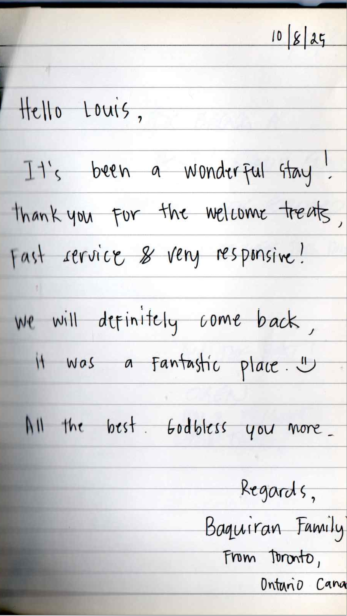 10/8/25
Hello Louis,
It's been a wonderful stay!
thank you for the welcome treats,
Fast service & very responsive!
we will definitely come back,
it was a Fantastic place. :)
All the best. Godbless you more.
Regards,
Baquiran Family
From Toronto,
Ontario Cana